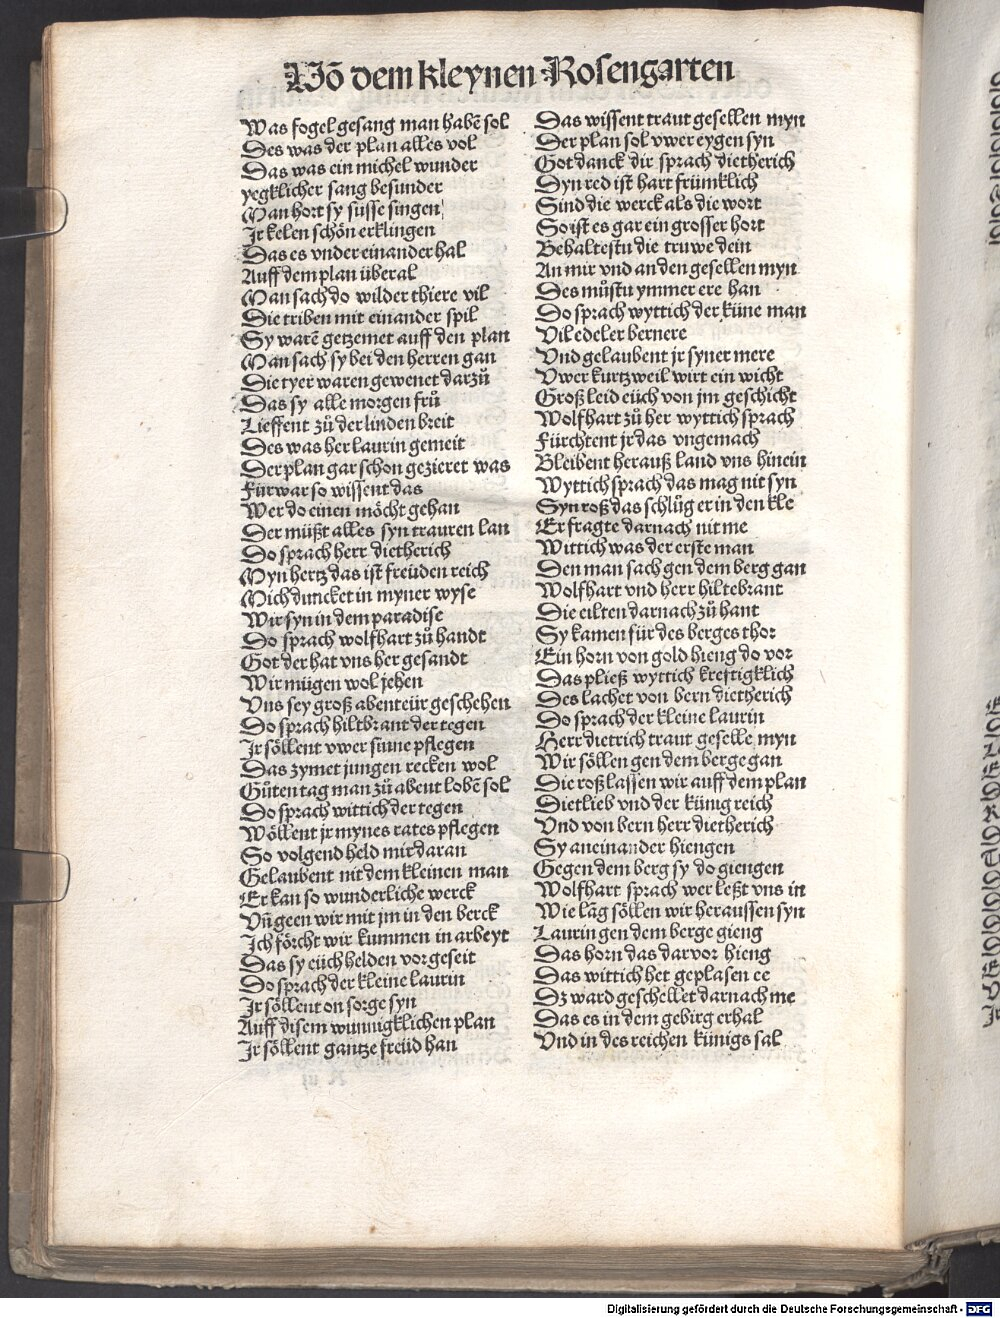 Uō dem kleynen Rosengarten
Was fogel gesang man habē sol
Des was der plan alles vol
Das was ein michel wunder
yegklicher sang besunder
Man hort sy susse singen
Jr kelen schön erklingen
Das es vnder einander hal
Auff dem plan überal
Man sach do wilder thiere vil
Die triben mit einander spil
Sy warē getzemet auff den plan
Man sach sy bei den herren gan
Die tyer waren gewenet darzů
Das sy alle morgen frů
Lieffent zů der linden breit
Des was her laurin gemeit
Der plan gar schon gezieret was
Fürwar so wissent das
Wer do einen möcht gehan
Der müßt alles syn trauren lan
Do sprach herr dietherich
Myn hertz das ist freüden reich
Mich duncket in myner wyse
Wir syn in dem paradise
Do sprach wolfhart zů handt
Got der hat vns her gesandt
Wir mügen wol jehen
Vns sey groß abenteür geschehen
Do sprach hiltbrant der tegen
Jr söllent vwer sinne pflegen
Das zymet jungen recken wol
Gůten tag man zů abent lobē sol
Do sprach wittich der tegen
Wöllent jr mynes rates pflegen
So volgend held mir daran
Gelaubent nit dem kleinen man
Er kan so wunderliche werck
Vñ geen wir mit jm in den berck
Jch förcht wir kummen in arbeyt
Das sy eüch helden vorgeseit
Do sprach der kleine laurin
Jr söllent on sorge syn
Auff disem wunnigklichen plan
Jr söllent gantze freüd han
Das wissent traut gesellen myn
Der plan sol vwer eygen syn
Got danck dir sprach dietherich
Dyn red ist hart frümklich
Sind die werck als die wort
So ist es gar ein grosser hort
Behaltestu die truwe dein
An mir vnd an den gesellen myn
Des můstu ymmer ere han
Do sprach wyttich der küne man
Vil edeler bernere
Vnd gelaubent jr syner mere
Vwer kurtzweil wirt ein wicht
Groß leid eüch von jm geschicht
Wolfhart zů her wyttich sprach
Fürchtent jr das vngemach
Bleibent herauß land vns hinein
Wyttich sprach das mag nit syn
Syn roß das schlůg er in den kle
Er fragte darnach nit me
Wittich was der erste man
Den man sach gen dem berg gan
Wolfhart vnd herr hiltebrant
Die eilten darnach zů hant
Sy kamen für des berges thor
Ein horn von gold hieng do vor
Das pließ wyttich kreftigklich
Des lachet von bern dietherich
Do sprach der kleine laurin
Herr dietrich traut geselle myn
Wir söllen gen dem berge gan
Die roß lassen wir auff dem plan
Dietlieb vnd der künig reich
Vnd von bern herr dietherich
Sy aneinander hiengen
Gegen dem berg sy do giengen
Wolfhart sprach wer leßt vns in
Wie lāg söllen wir heraussen syn
Laurin gen dem berge gieng
Das horn das dar vor hieng
Das wittich het geplasen ee
Dz ward geschellet darnach me
Das es in dem gebirg erhal
Vnd in des reichen künigs sal
Digitalisierung gefördert durch die Deutsche Forschungsgemeinschaft - DFG